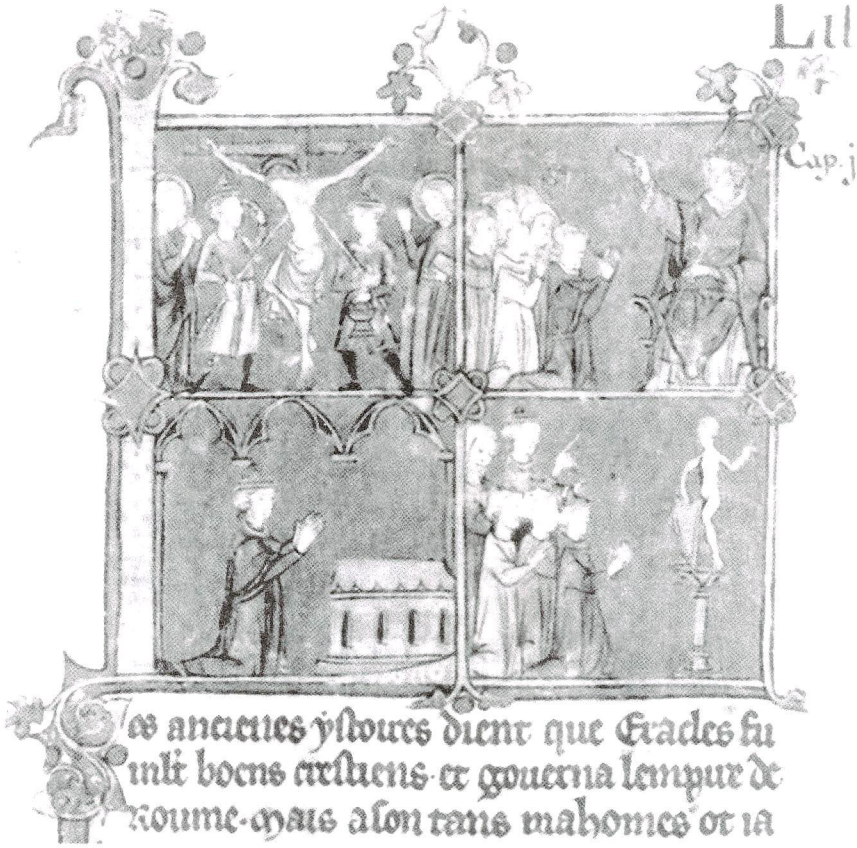 LII
Cap. j
es anciienes ystoires dient que Eracles fu
mlt boens crestiens · et gouerna lempire de
Roume · Mais a son tans mahomes ot ia